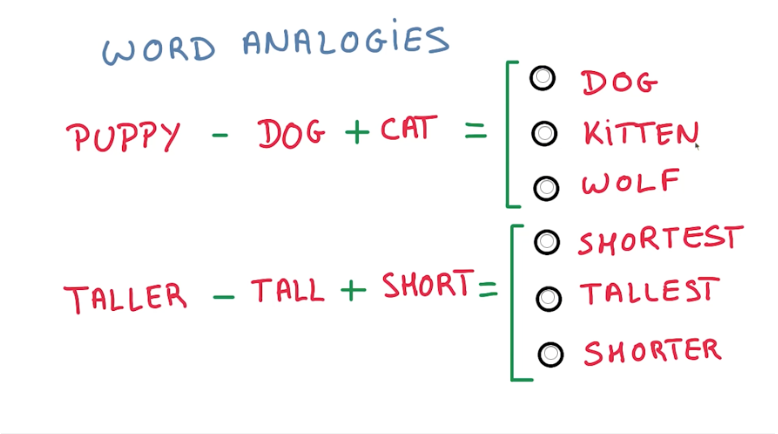 WORD ANALOGIES
PUPPY - DOG + CAT =
DOG
KITTEN
WOLF
TALLER - TALL + SHORT =
SHORTEST
TALLEST
SHORTER